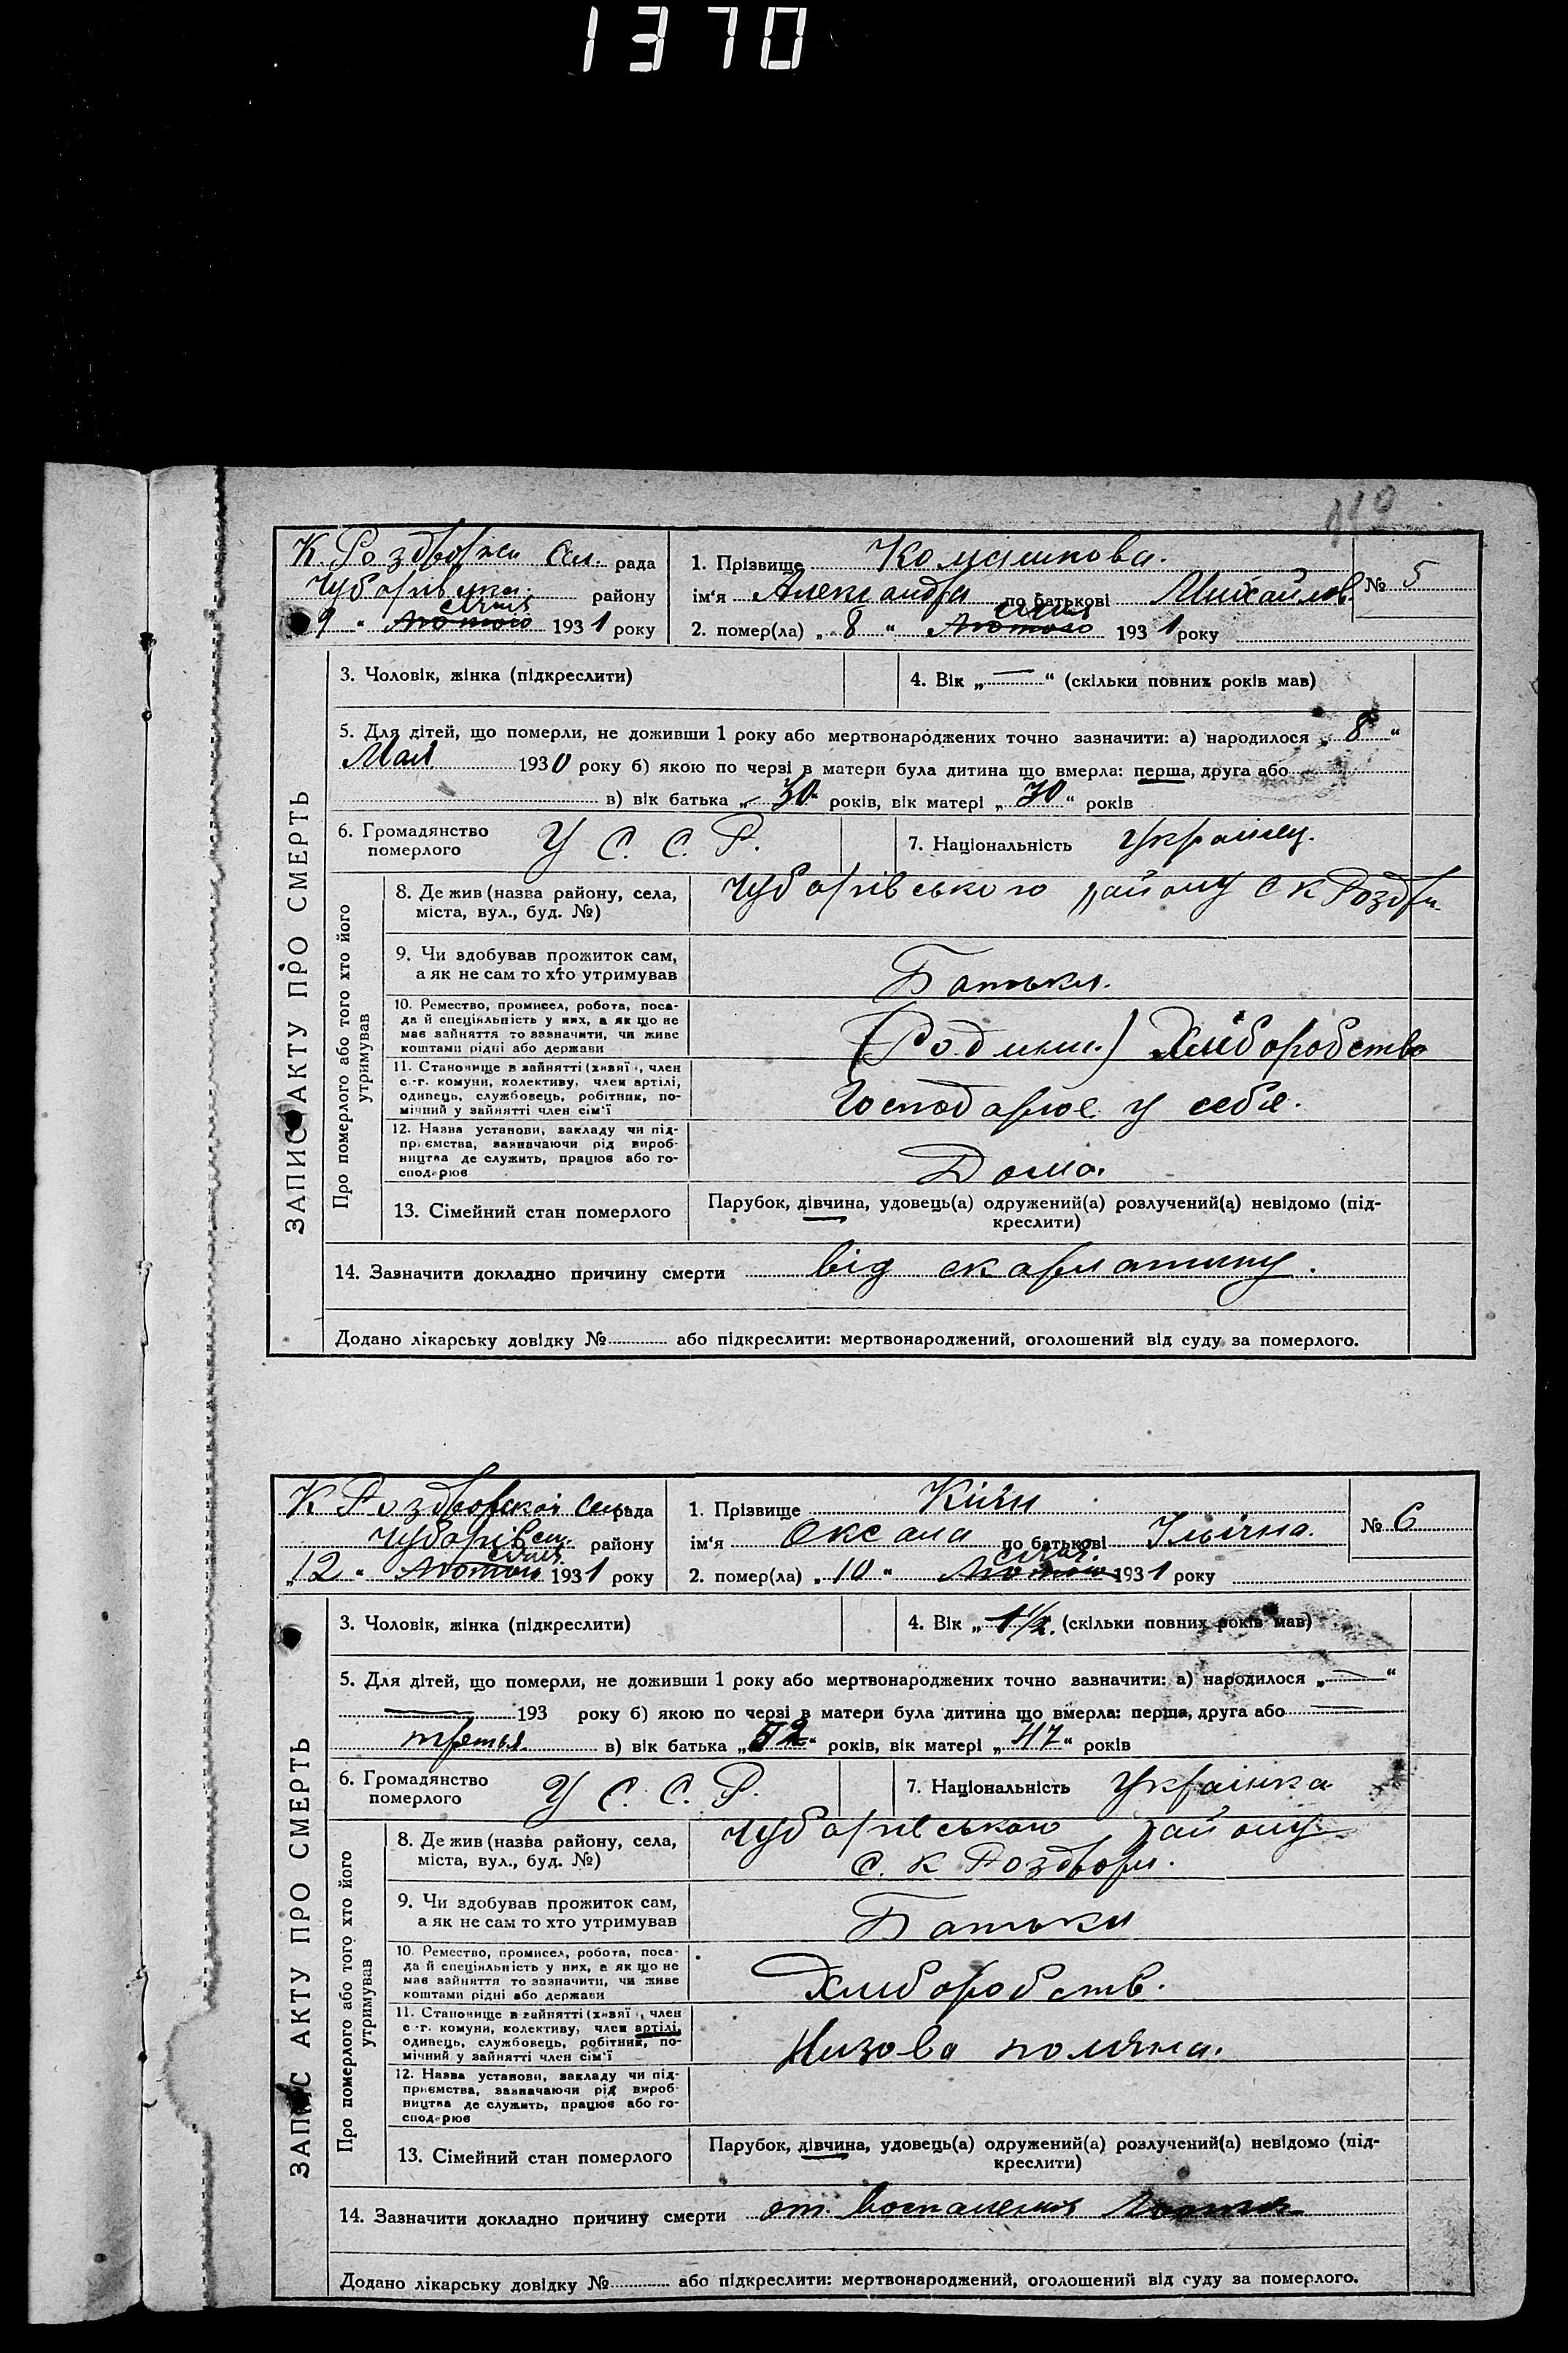 1370
К. Роздорськ Сіл. рада
Чубарівськ. району
"9" Лютого січня 1931 року
1. Прізвище Комашкова.
ім'я Александра по батькові Михайлов.
№ 5
2. помер(ла) "8" Лютого січня 1931 року
3. Чоловік, жінка (підкреслити)
4. Вік „—“ (скільки повних років мав)
5. Для дітей, що померли, не доживши 1 року або мертвонароджених точно зазначити: а) народилося „8“
Мая 1930 року б) якою по черзі в матери була дитина що вмерла: перша, друга або
в) вік батька „30“ років, вік матері „30“ років
6. Громадянство
померлого
У С. С. Р.
7. Національність
Українц.
ЗАПИС АКТУ ПРО СМЕРТЬ
Про померлого або того хто його
утримував
8. Де жив (назва району, села,
міста, вул., буд. №)
Чубарівського району с К Розд
9. Чи здобував прожиток сам,
а як не сам то хто утримував
Батьки.
10. Ремество, промисел, робота, поса-
да й спеціяльність у них, а як що не
має зайняття то зазначити, чи живе
коштами рідні або держави
(Родини.) Хліборобство
11. Становище в зайнятті (хазяї, член
с.-г. комуни, колективу, член артілі,
одинець, службовець, робітник, по-
мічний у зайнятті член сім'ї
Господарює у себе.
12. Назва установи, закладу чи під-
приємства, зазначаючи рід вироб-
ництва де служить, працює або го-
сподарює
Дома.
13. Сімейний стан померлого
Парубок, дівчина, удовець(а) одружений(а) розлучений(а) невідомо (під-
креслити)
14. Зазначити докладно причину смерти від скарлатини.
Додано лікарську довідку № або підкреслити: мертвонароджений, оголошений від суду за померлого.
К Роздорської Сіль рада
Чубарівськ. району
"12" Лютого січня 1931 року
1. Прізвище
ім'я Оксана по батькові Ільічна.
№ 6
2. помер(ла) "10" Лютого січня. 1931 року
3. Чоловік, жінка (підкреслити)
4. Вік „1 1/2. (скільки повних років мав)
5. Для дітей, що померли, не доживши 1 року або мертвонароджених точно зазначити: а) народилося „—“
— 193 року б) якою по черзі в матери була дитина що вмерла: перша, друга або
третья. в) вік батька „52“ років, вік матері „47“ років
6. Громадянство
померлого
У С. С. Р.
7. Національність
Українка
ЗАПИС АКТУ ПРО СМЕРТЬ
Про померлого або того хто його
утримував
8. Де жив (назва району, села,
міста, вул., буд. №)
Чубарівського району
с. К Роздори.
9. Чи здобував прожиток сам,
а як не сам то хто утримував
Батьки
10. Ремество, промисел, робота, поса-
да й спеціяльність у них, а як що не
має зайняття то зазначити, чи живе
коштами рідні або держави
Хлиборобств.
11. Становище в зайнятті (хазяї, член
с.-г. комуни, колективу, член артілі,
одинець, службовець, робітник, по-
мічний у зайнятті член сім'ї
Низова поляна.
12. Назва установи, закладу чи під-
приємства, зазначаючи рід вироб-
ництва де служить, працює або го-
сподарює
13. Сімейний стан померлого
Парубок, дівчина, удовець(а) одружений(а) розлучений(а) невідомо (під-
креслити)
14. Зазначити докладно причину смерти от. воспаления
Додано лікарську довідку № або підкреслити: мертвонароджений, оголошений від суду за померлого.